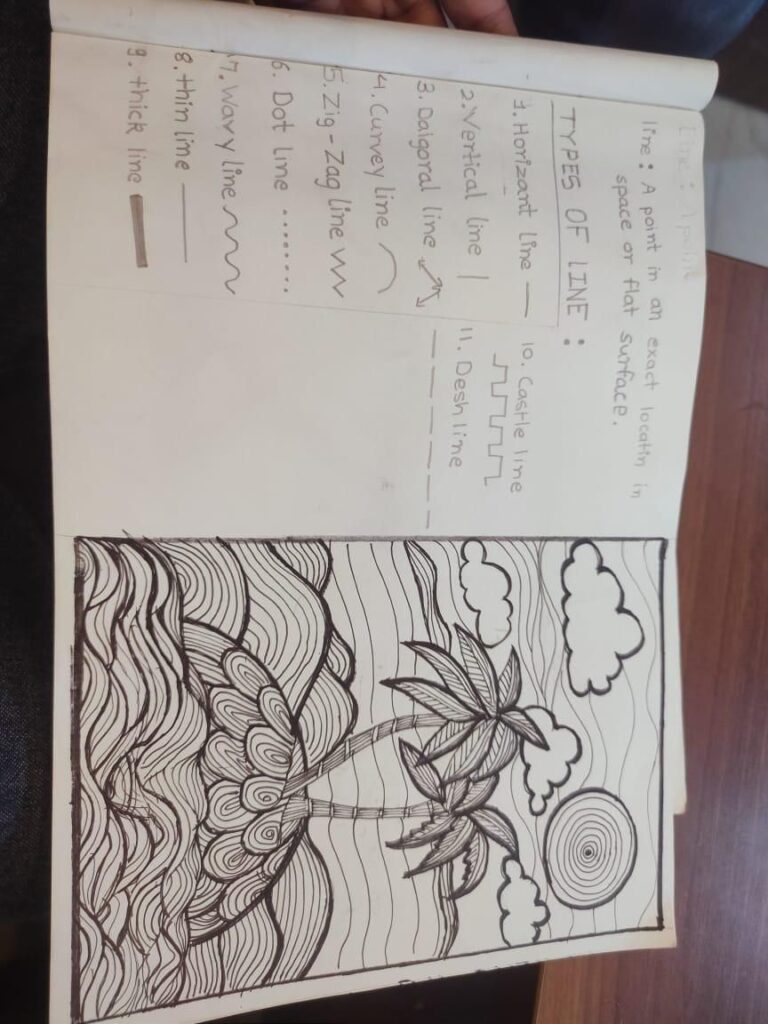 Line : A point
line : A point in an exact locatin in
space or flat surface.
TYPES OF LINE :
1. Horizant line
2. Vertical line
3. Daigoral line
4. Curvey line
5. Zig-Zag line
6. Dot line
7. Wavy line
8. thin line
9. thick line
10. Castle line
11. Desh line